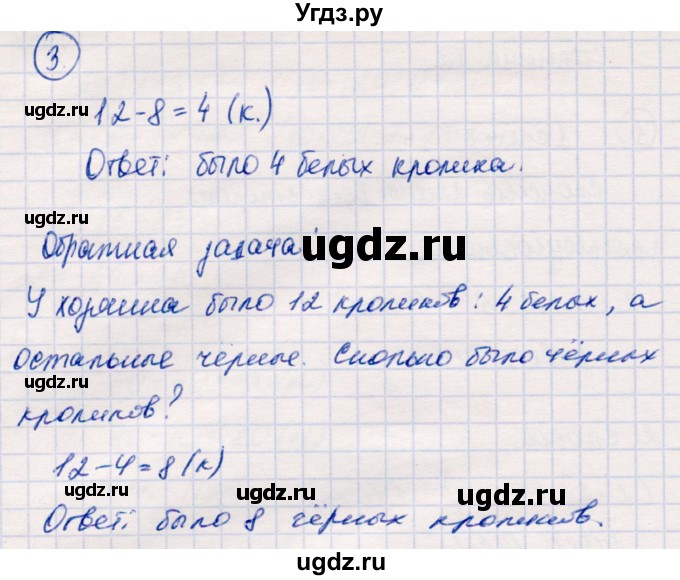 Угдз.ру
3.
ugdz.ru ugdz.ru
12-8=4 (к.)
Ответ: было 4 белых кролика.
ugdz.ru
Обратная задача:
ugdz.ru
У хозяина было 12 кроликов: 4 белых, а
остальные чёрные. Сколько было чёрных
ugdz.ru ugdz.ru
кроликов?
12-4=8 (к)
ugdz.ru ugdz.ru
Ответ: было 8 чёрных кроликов.
ugdz.ru